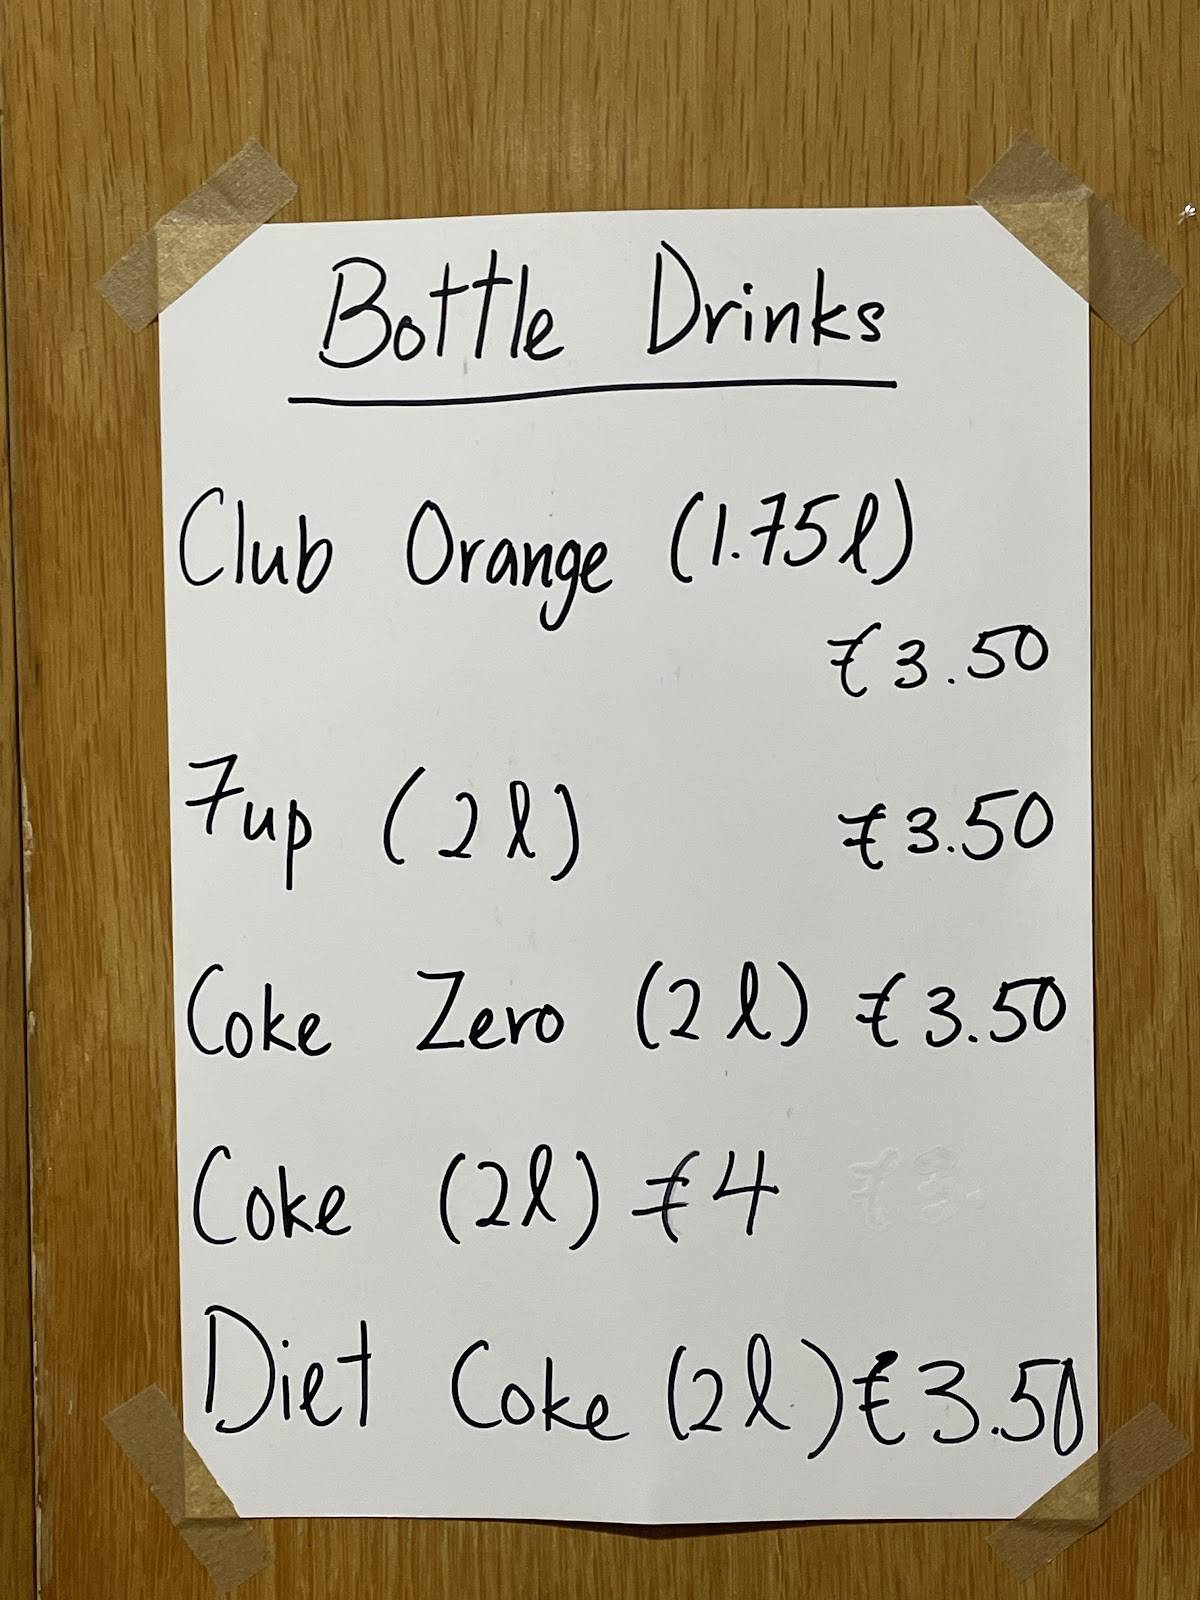 Bottle Drinks
Club Orange (1.75l)
€3.50
7up (2l) €3.50
Coke Zero (2l) €3.50
Coke (2l) €4
Diet Coke (2l) €3.50